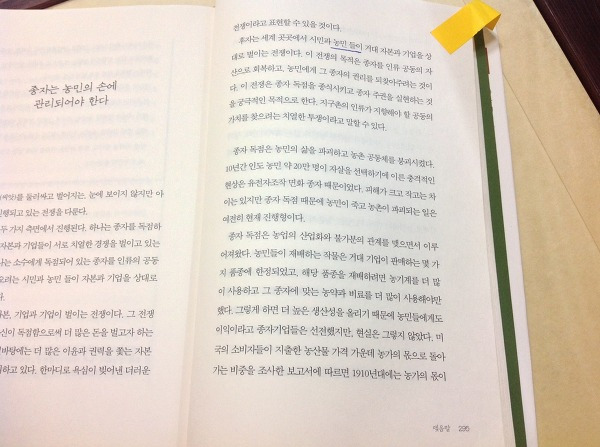 종자는 농민의 손에
관리되어야 한다
둘러싸고 벌어지는, 눈에 보이지 않지만 이
진행되고 있는 전쟁을 다룬다.
두 가지 측면에서 진행된다. 하나는 종자를 독점하
자본과 기업들이 서로 치열한 경쟁을 벌이고 있는
나는 소수에게 독점되어 있는 종자를 인류의 공동
으려는 시민과 농민 들이 자본과 기업을 상대로
다.
본, 기업과 기업이 벌이는 전쟁이다. 그 전쟁
신이 독점함으로써 더 많은 돈을 벌고자 하는
바탕에는 더 많은 이윤과 권력을 좇는 자본
하고 있다. 한마디로 욕심이 빚어낸 더러운
전쟁이라고 표현할 수 있을 것이다.
후자는 세계 곳곳에서 시민과 농민 들이 거대 자본과 기업을 상
대로 벌이는 전쟁이다. 이 전쟁의 목적은 종자를 인류 공동의 자
산으로 회복하고, 농민에게 그 종자의 권리를 되찾아주려는 것이
다. 이 전쟁은 종자 독점을 종식시키고 종자 주권을 실현하는 것
을 궁극적인 목적으로 한다. 지구촌의 인류가 지향해야 할 공동의
가치를 찾으려는 치열한 투쟁이라고 말할 수 있다.
종자 독점은 농민의 삶을 파괴하고 농촌 공동체를 붕괴시켰다.
10년간 인도 농민 약 20만 명이 자살을 선택하기에 이른 충격적인
현상은 유전자조작 면화 종자 때문이었다. 피해가 크고 적고는 차
이는 있지만 종자 독점 때문에 농민이 죽고 농촌이 파괴되는 일은
여전히 현재 진행형이다.
종자 독점은 농업의 산업화와 불가분의 관계를 맺으면서 이루
어져왔다. 농민들이 재배하는 작물은 거대 기업이 판매하는 몇 가
지 품종에 한정되었고, 해당 품종을 재배하려면 농기계를 더 많
이 사용하고 그 종자에 맞는 농약과 비료를 더 많이 사용해야만
했다. 그렇게 하면 더 높은 생산성을 올리기 때문에 농민들에게도
이익이라고 종자기업들은 선전했지만, 현실은 그렇지 않았다. 미
국의 소비자들이 지출한 농산물 가격 가운데 농가의 몫으로 돌아
가는 비중을 조사한 보고서에 따르면 1910년대에는 농가의 몫이
맺음말 295